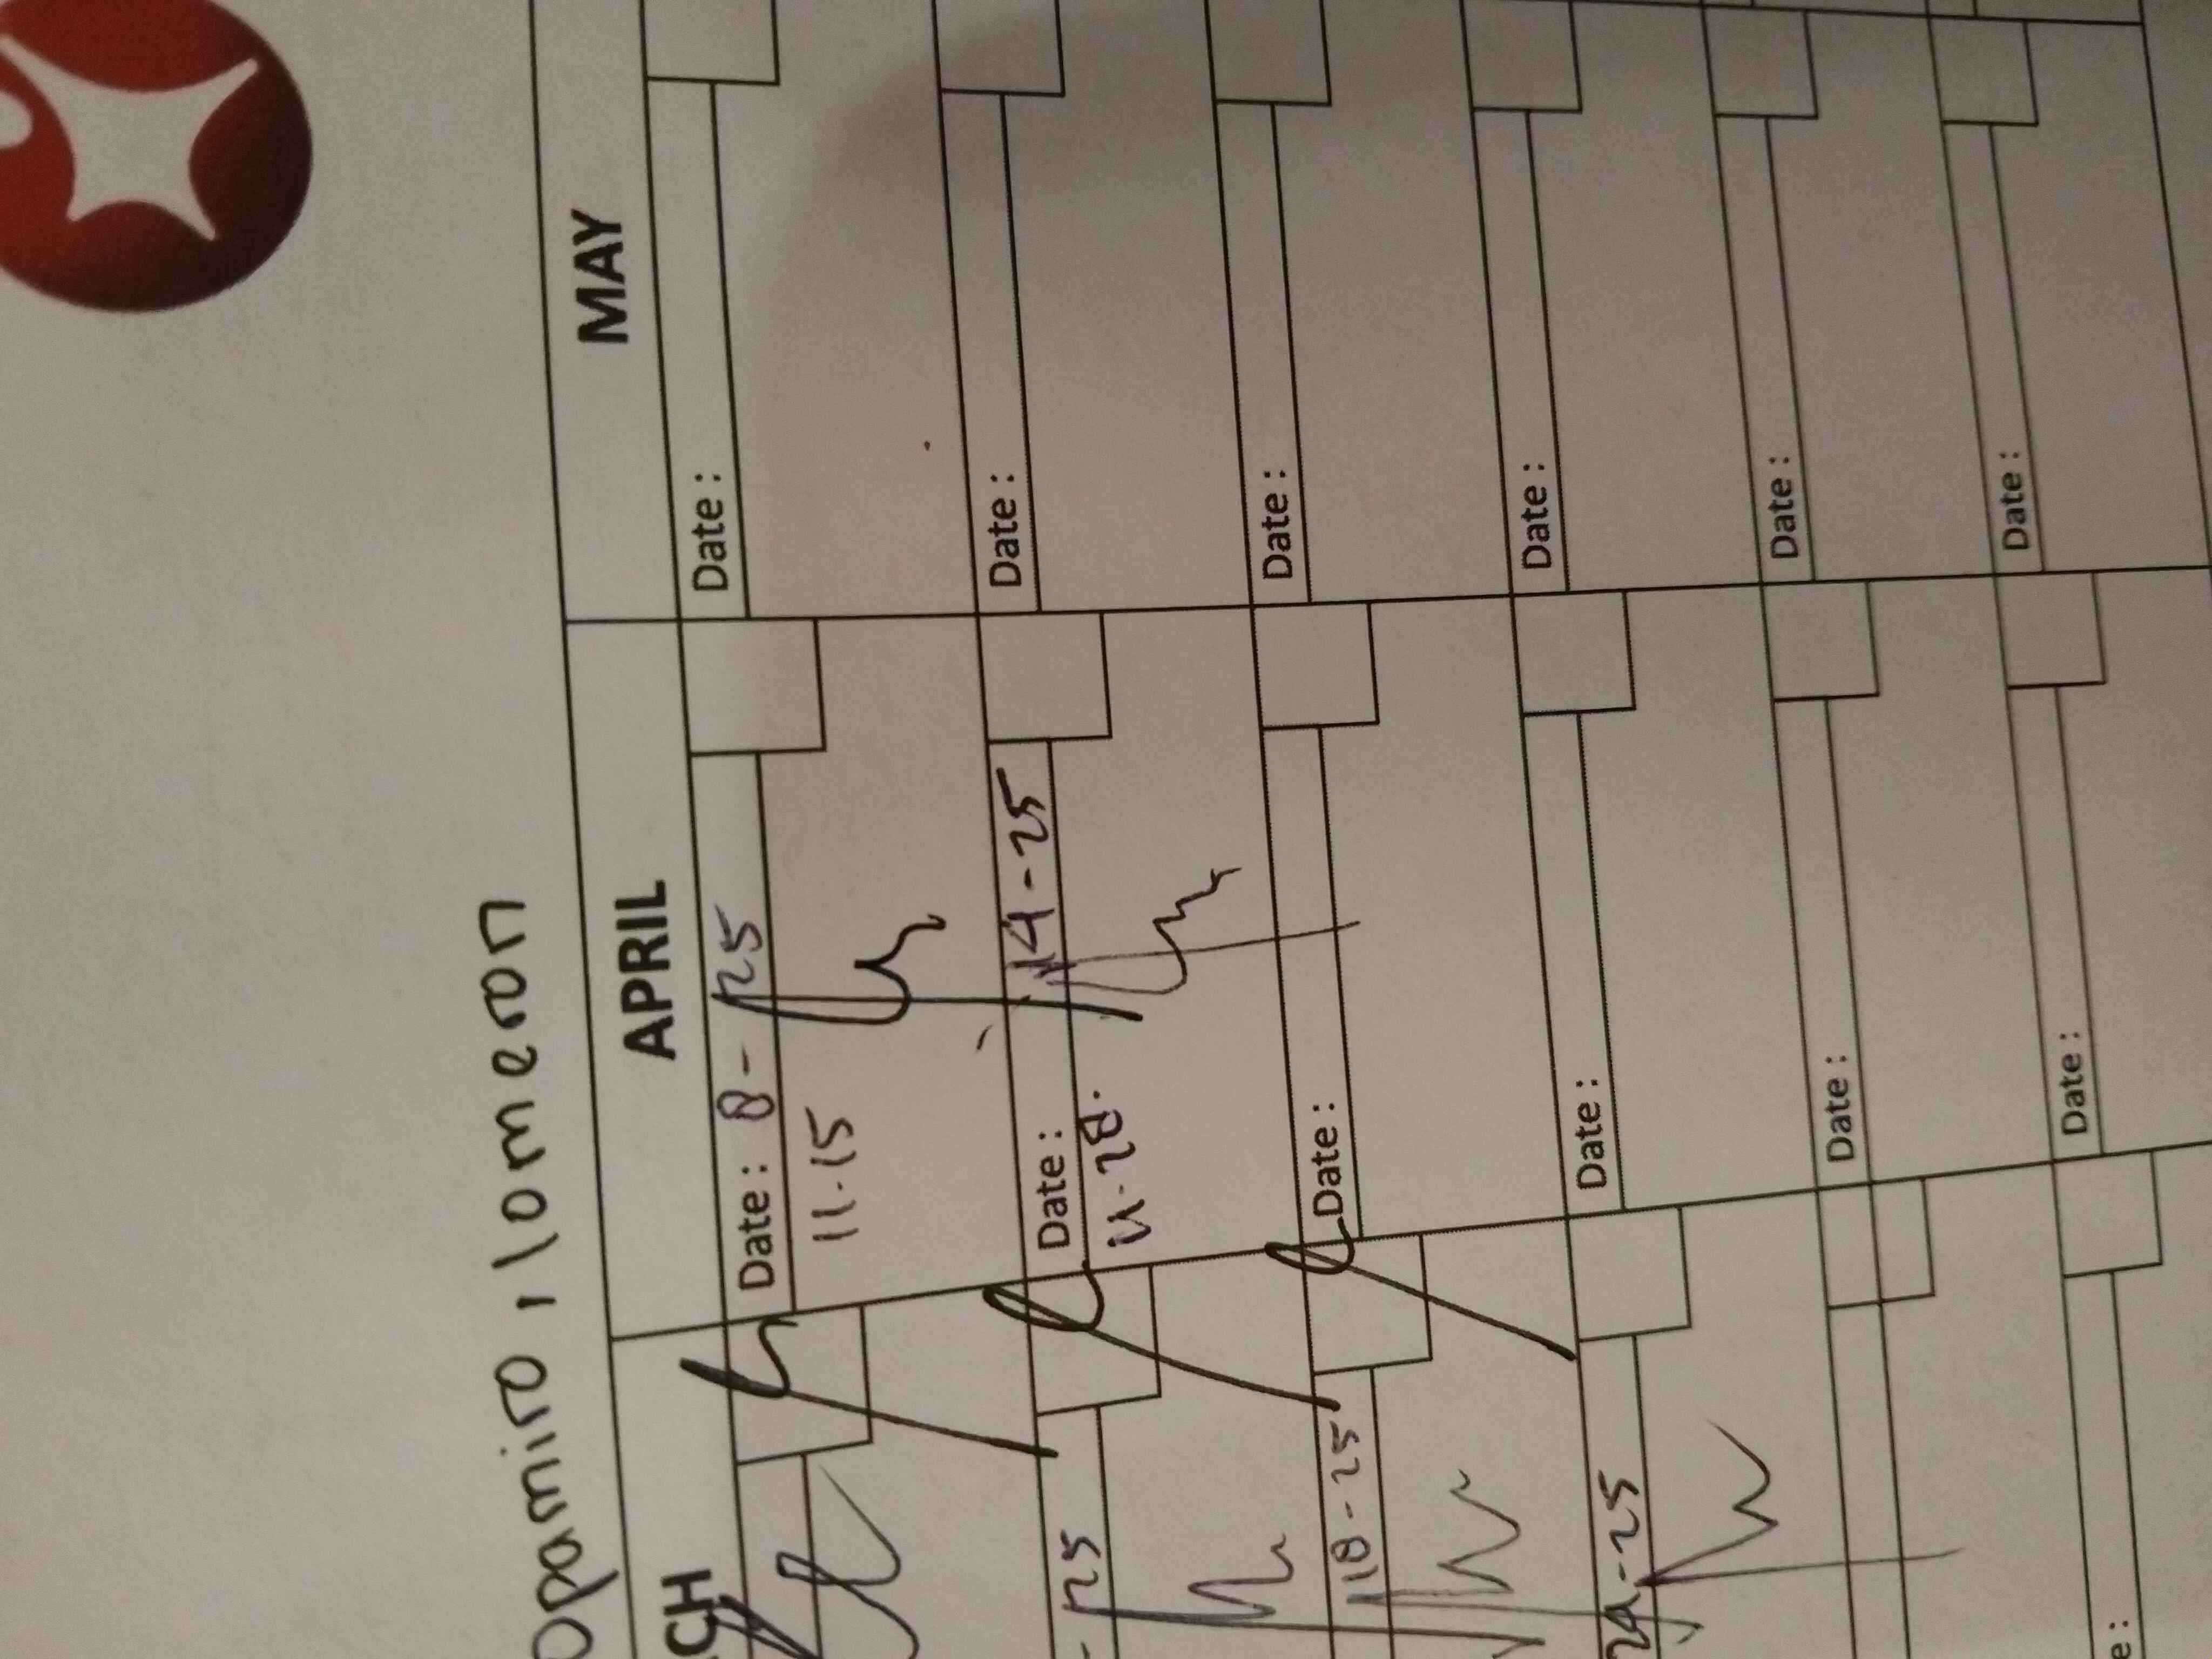 opamiro, iomeron
CH
APRIL
MAY
Date: 8- 25
11.15
Date:
- 25
Date: 14-25
11-28.
Date:
18-25
Date:
Date:
29-25
Date:
Date:
Date:
Date:
Date:
e:
Date:
Date: